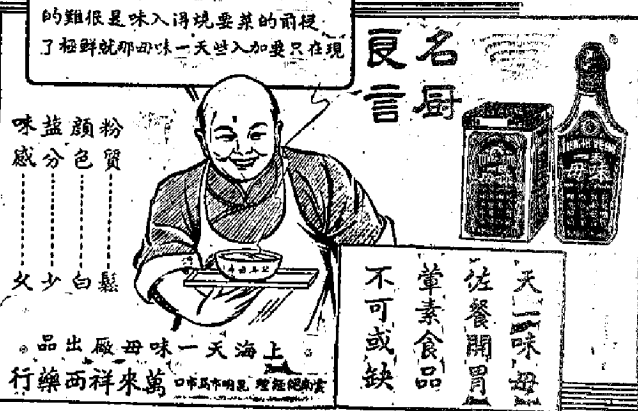 從前的菜要燒得入味是很難的
現在只要加入些天一味母那就鮮極了
名厨
良言
粉質……鬆
顏色……白
盐分……少
味感……久
天一味母
佐餐開胃
葷素食品
不可或缺
上海天一味母廠出品
雲南總經理 昆明市馬市口 萬來祥西藥行